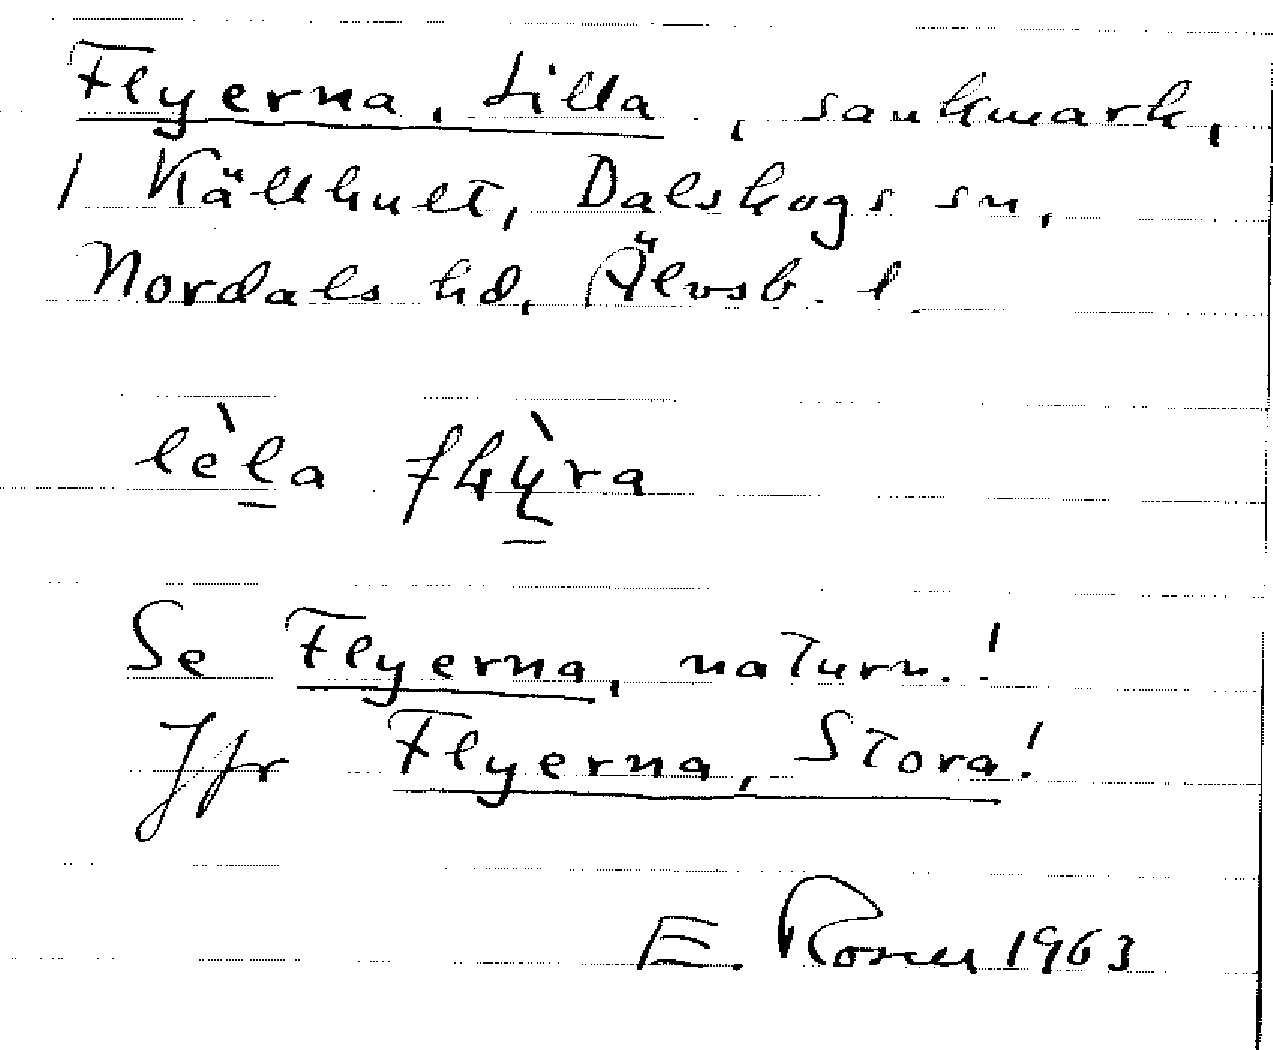 Flyerna, Lilla, sankmark,
i Källhult, Dalskogs sn,
Nordals hd, Älvsb. l.
Se Flyerna, naturn.!
Jfr Flyerna, Stora!
E. Rosell 1963